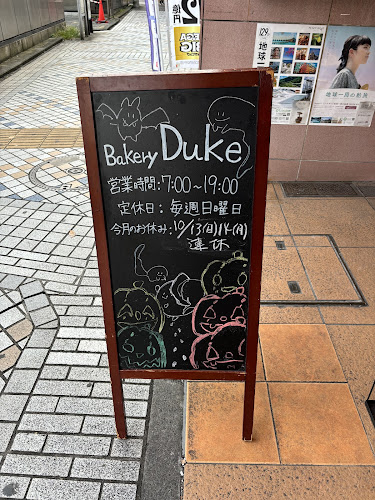 Bakery Duke
営業時間:7:00〜19:00
定休日:毎週日曜日
今月のお休み:10/13(日)14(月)
連休
億円
地球